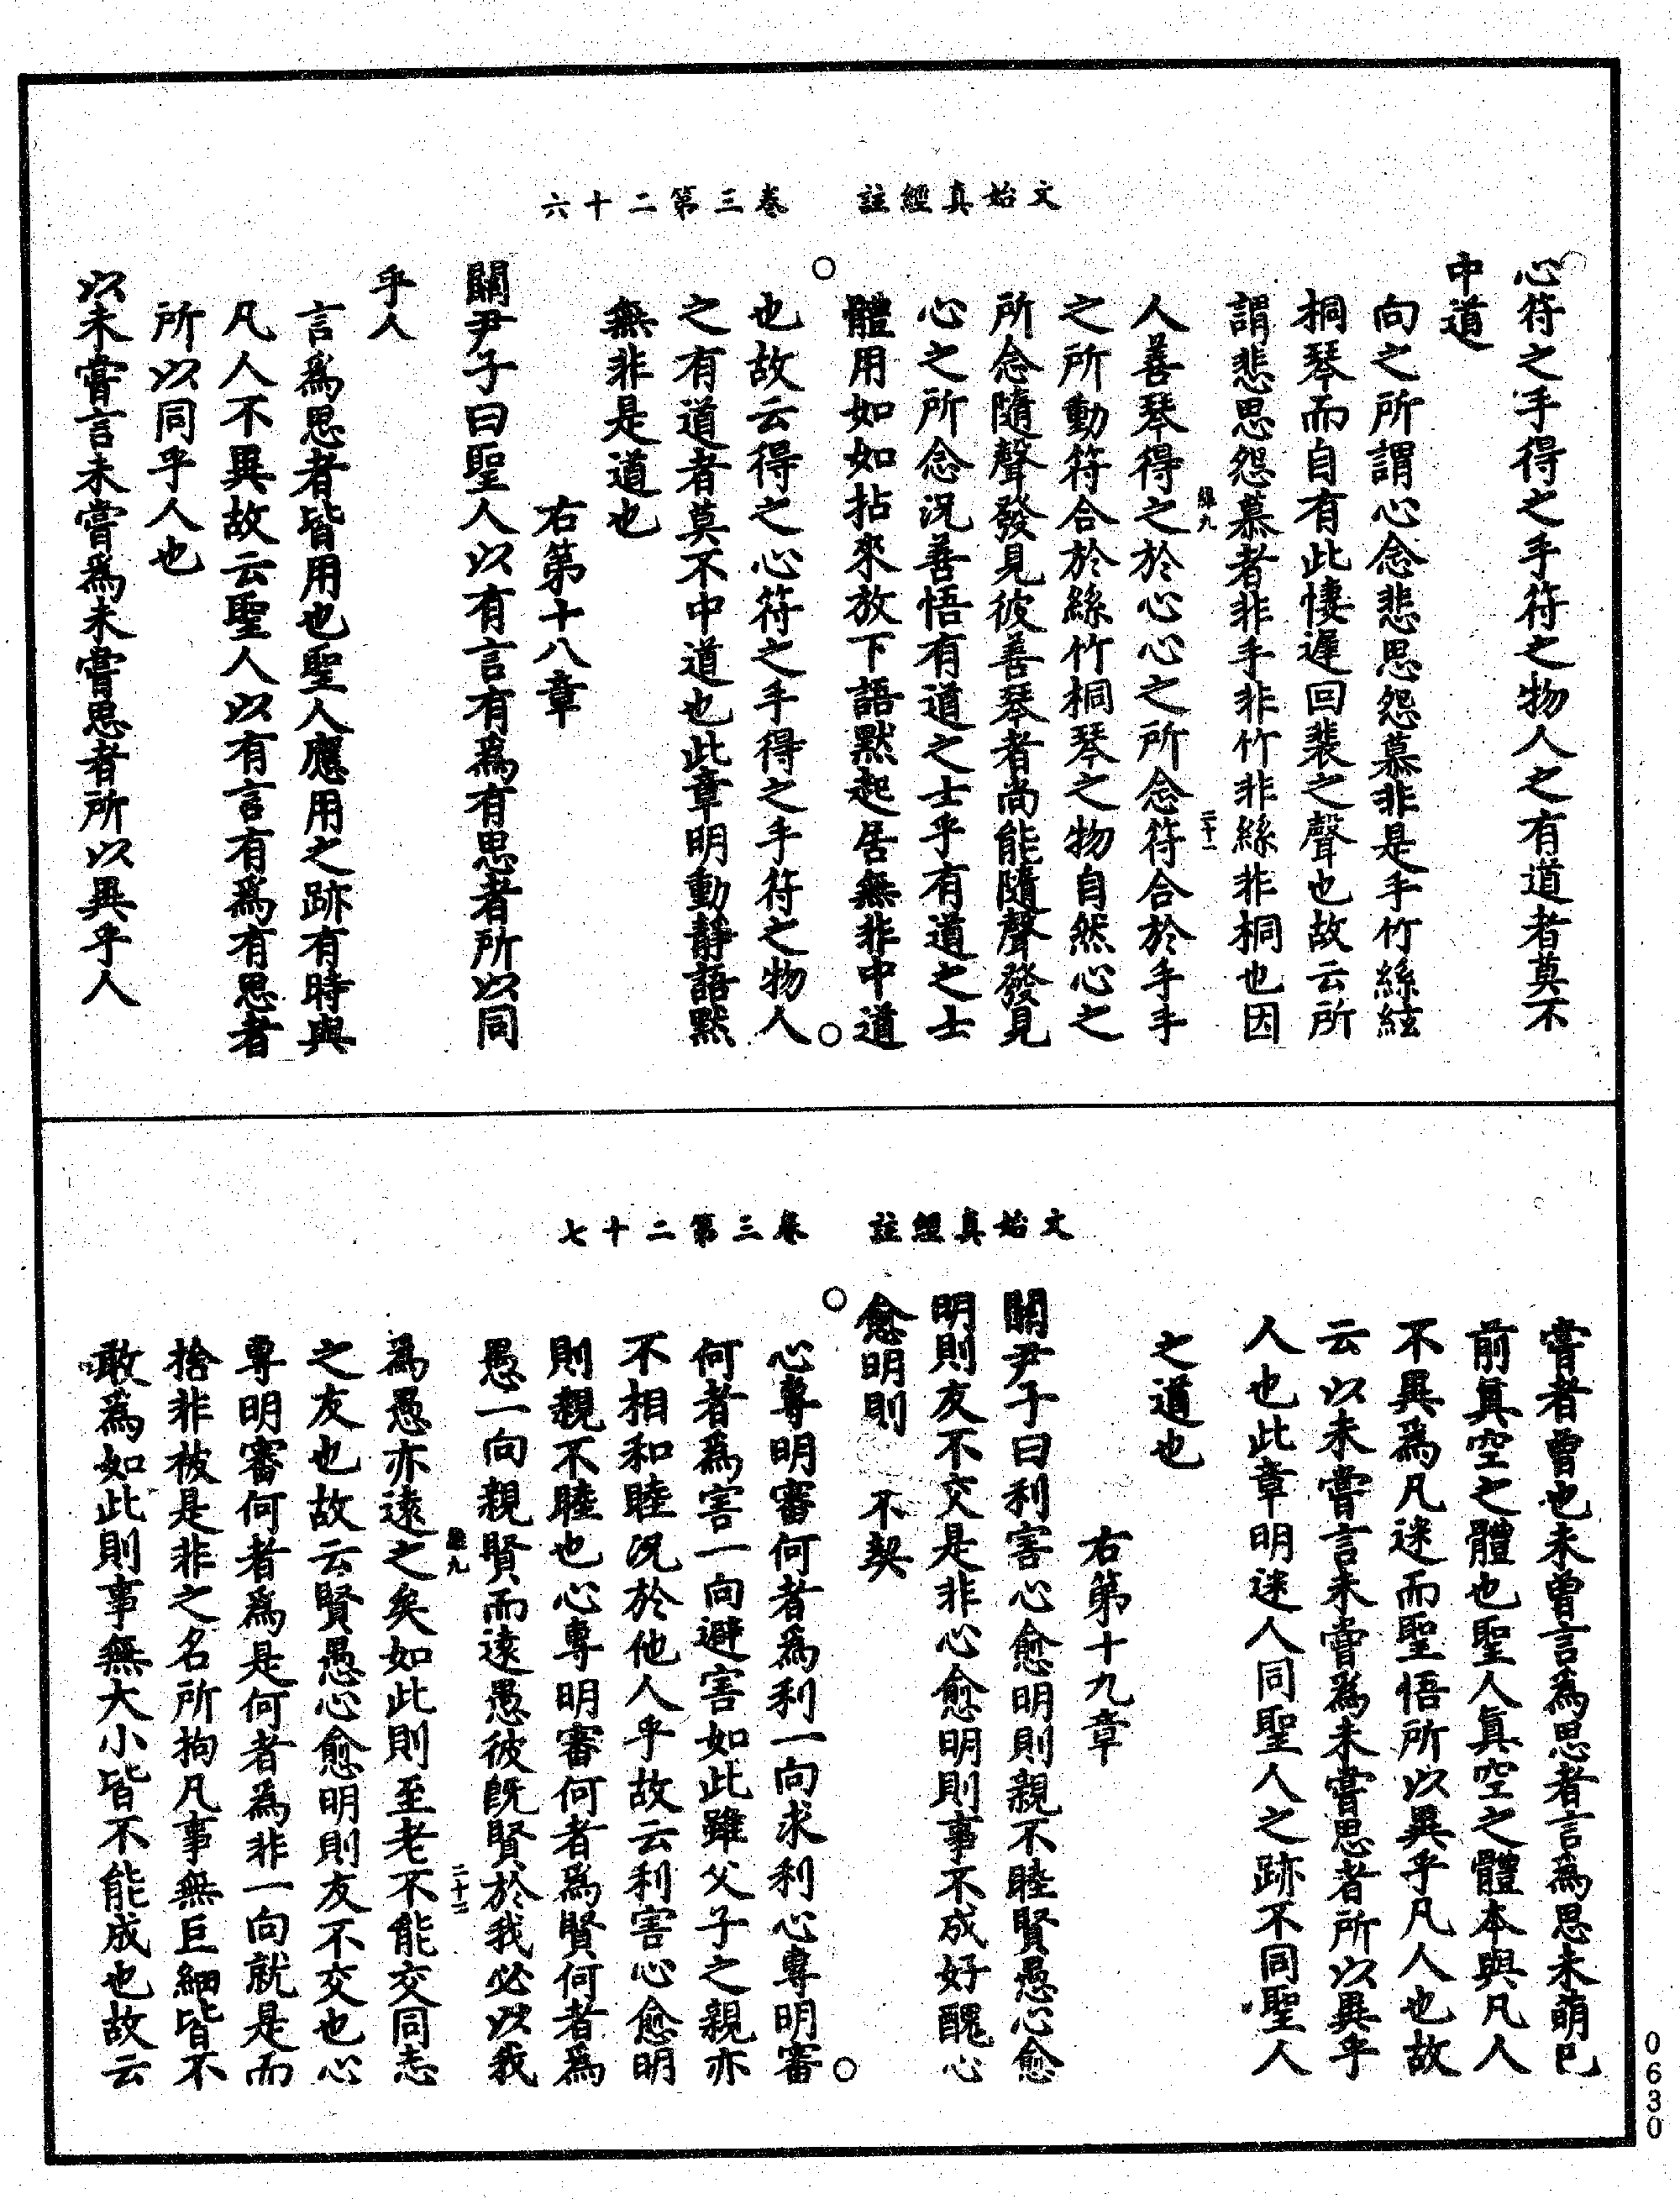 文始真經註　卷三第二十六
心符之手得之手符之物人之有道者莫不
中道
向之所謂心念悲思怨慕非是手竹絲絃
桐琴而自有此悽遲回裴之聲也故云所
謂悲思怨慕者非手非竹非絲非桐也因
絲九　二十一
人善琴得之於心心之所念符合於手手
之所動符合於絲竹桐琴之物自然心之
所念隨聲發見彼善琴者尚能隨聲發見
心之所念況善悟有道之士乎有道之士
體用如如拈來放下語默起居無非中道
也故云得之心符之手得之手符之物人
之有道者莫不中道也此章明動靜語默
無非是道也
右第十八章
關尹子曰聖人以有言有為有思者所以同
乎人
言為思者皆用也聖人應用之跡有時與
凡人不異故云聖人以有言有為有思者
所以同乎人也
以未嘗言未嘗為未嘗思者所以異乎人
文始真經註　卷三第二十七
嘗者曾也未曾言為思者言為思未萌已
前真空之體也聖人真空之體本與凡人
不異為凡迷而聖悟所以異乎凡人也故
云以未嘗言未嘗為未嘗思者所以異乎
人也此章明迷人同聖人之跡不同聖人
之道也
右第十九章
關尹子曰利害心愈明則親不睦賢愚心愈
明則友不交是非心愈明則事不成好醜心
愈明則　不契
心專明審何者為利一向求利心專明審
何者為害一向避害如此雖父子之親亦
不相和睦況於他人乎故云利害心愈明
則親不睦也心專明審何者為賢何者為
愚一向親賢而遠愚彼既賢於我必以我
絲九　二十二
為愚亦遠之矣如此則至老不能交同志
之友也故云賢愚心愈明則友不交也心
專明審何者為是何者為非一向就是而
捨非被是非之名所拘凡事無巨細皆不
敢為如此則事無大小皆不能成也故云
0630